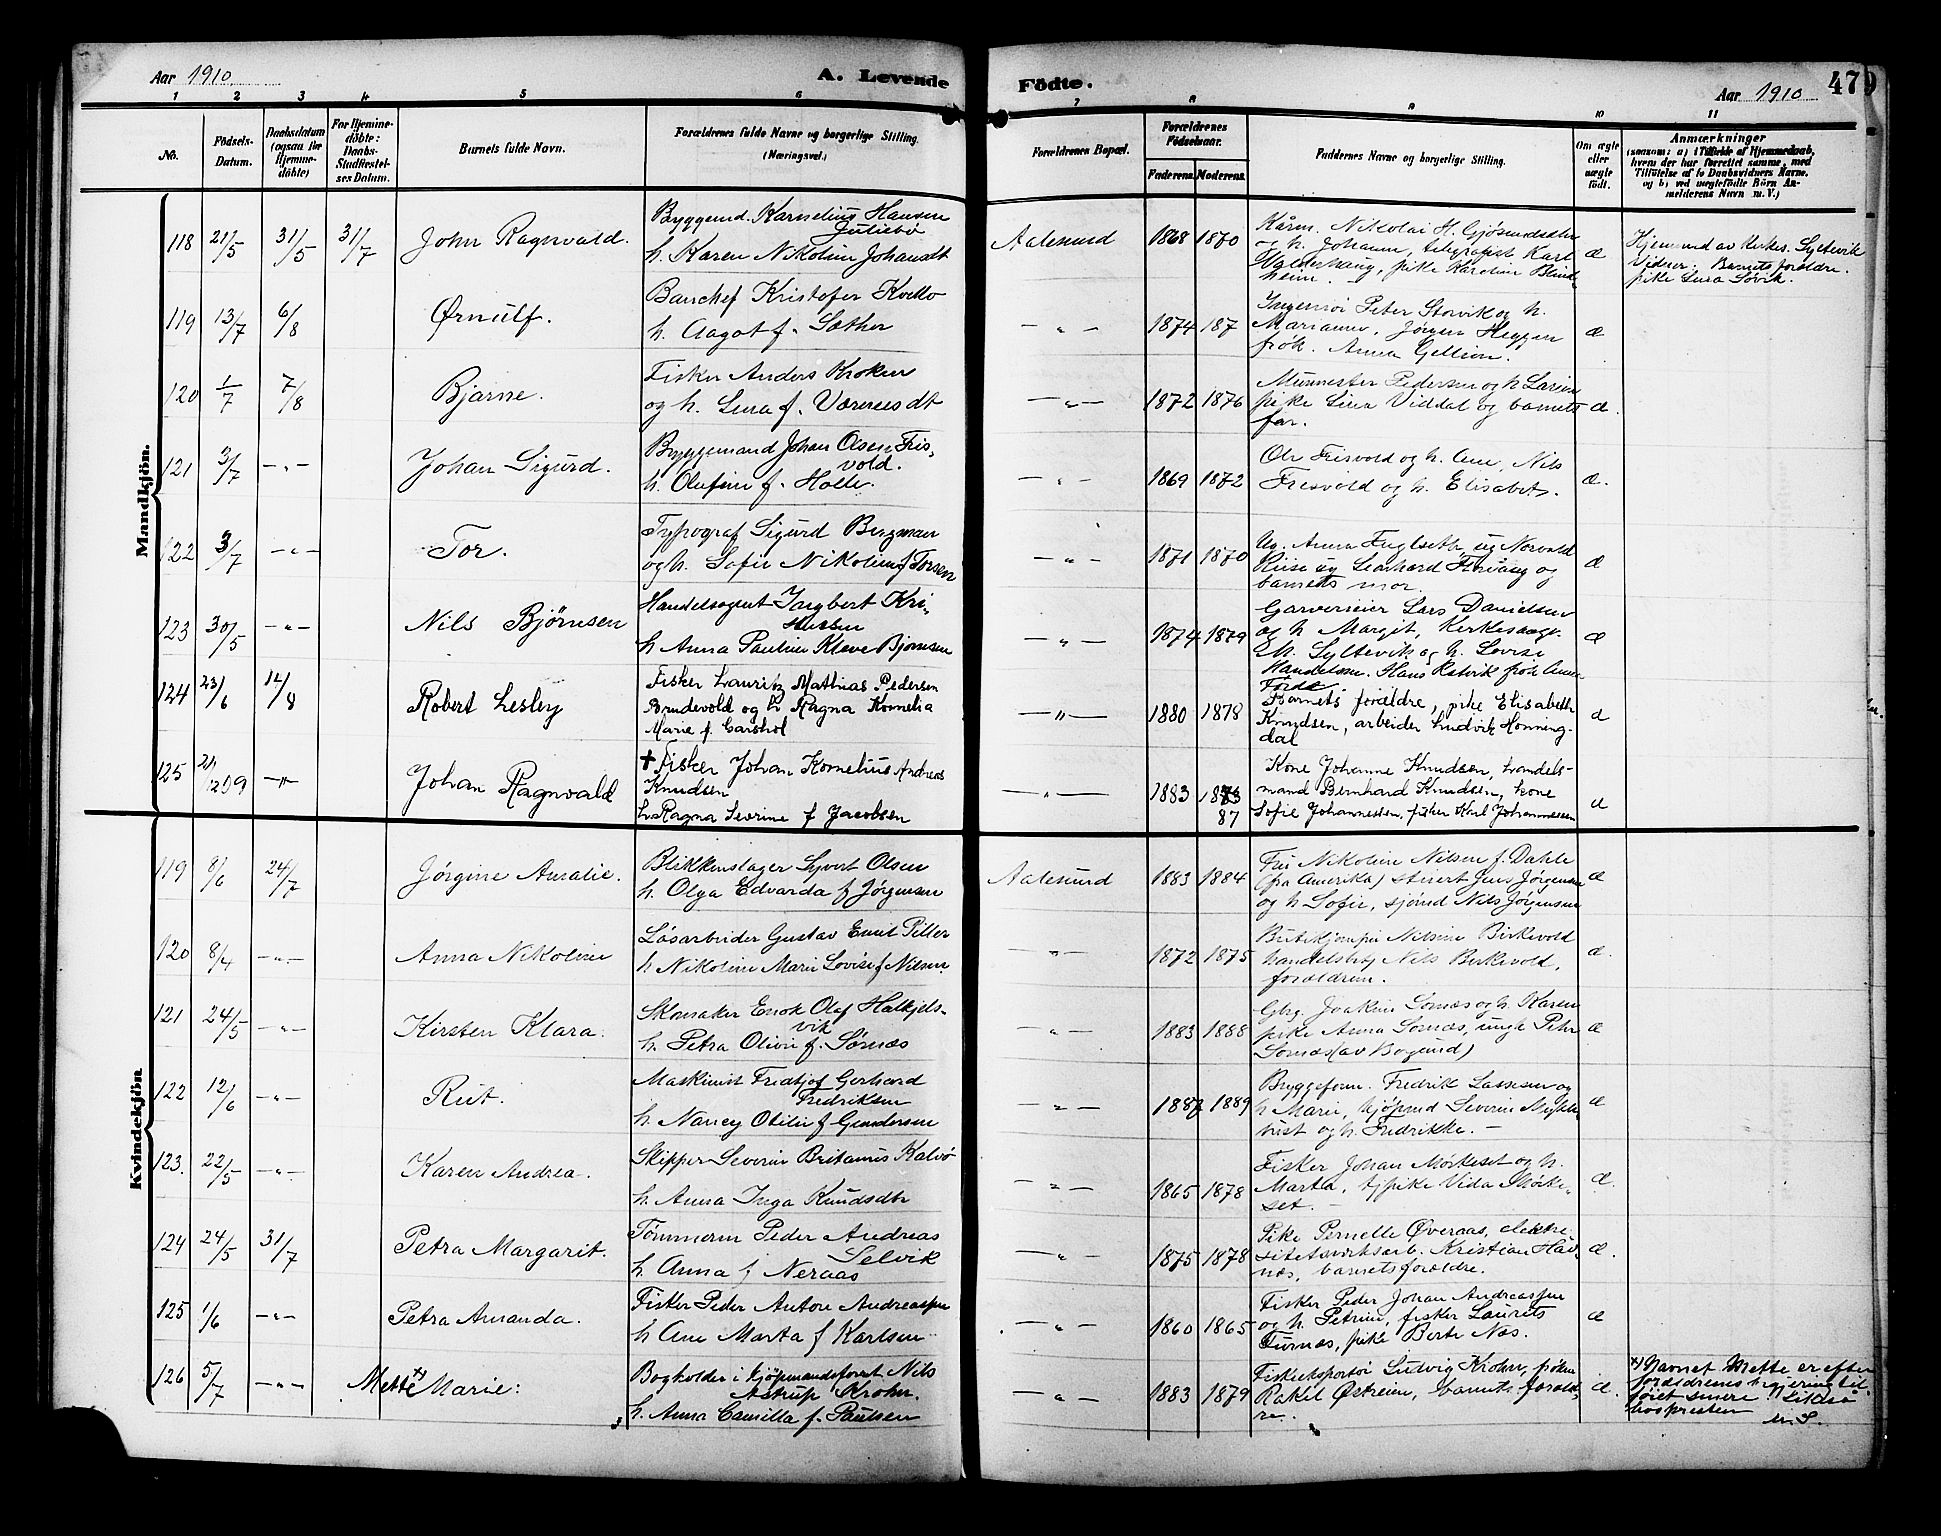 Aar 1910 A. Levende
Födte. Aar 1910 47
1 2 3 4 5 6 7 8 9 10 11
No.
Födsels-
Datum.
Daabsdatum
(ogsaa for
Hjemme-
döbte)
For Hjemme-
döbte:
Daabs-
Stadfæstel-
ses Datum.
Barnets fulde Navn.
Forældrenes fulde Navne og borgerlige Stilling.
(Næringsvei.)
Forældrenes Bopæl.
Forældrenes
Födselsaar.
Faderens. Moderens.
Faddernes Navne og borgerlige Stilling.
Om ægte
eller
uægte
født.
Anmærkninger
(saasom: a) i Tilfælde af Hjemmedaab,
hvem der har forrettet samme, med
Tilföielse af to Daabsvidners Navne,
og b) ved uægtefødte Börn An-
melderens Navn m. V.)
Mandkjön.
118 21/5 31/5 31/7 John Ragnvald.
Byggmd. Karnelius Hansen
Juliebø
h. Karen Nikoline Johansdt
Aalesund 1868 1870
Nikolai H. Gjøsundsæter
h. Johanne, telegrafist Karl
Walderhaug, pike Karoline Blind-
heim.
æ
Hjemmed av Kirkes. Syltevik
Vidner: Barnets forældre.
pike Lina Søvik.
119 13/7 6/8 Ørnulf.
Kristofer
h. Aagot f. Sæther
— „ — 1874 187
Ingeniør Peter Storvik og h.
Marianne, Jørgen Heggen
frøk. Anna
æ
120 1/7 7/8 Bjarne.
Fisker Anders Kroken
og h. Lina f. Værnesdt
— „ — 1872 1876
Murmester Pedersen og h
pike Lina Viddal og barnets
far.
æ.
121 3/7 — „ — Johan Sigurd.
Bryggemand Johan Olsen Fris-
vold.
h. Olufine f. Holte.
— „ — 1869 1872
Ole Frisvold og h. Ane, Nils
Frisvold og h. Elisabet.
æ.
122 3/7 — „ — Tor.
Typograf Sigurd Bergman
og h. Sofie Nikoline f Torsen
— „ — 1871 1870
Ug. Anna Fuglseth, ug Norvald
Riise ug Leonhard
og
barnets mor.
æ
123 30/5 — „ — Nils Bjørnsen
Handelsagent Ingbert Kri-
stensen
h Anna Pauline Kleve Bjørnsen
— „ — 1874 1879
Garverieier Lars Danielsen
og h Margit, Kirkesang.
M. Syltevik og h. Lovise
Hans Ratvik frøk Anna
Förde
æ
124 23/6 14/8 Robert Lesley
Fisker Lauritz Mathias Pedersen
Brudevold og h Ragna Kornelia
Marie f. Garshol
— „ — 1880 1878
Barnets forældre, pike Elisabeth
Knudsen, arbeider Ludvik Honning-
dal
æ
125 21/12 09 — „ — Johan Ragnvald
+ Fisker Johan Kornelius Andreas
Knudsen
h Ragna Severine f Jacobsen
— „ — 1883
87
Kone Johanne Knudsen, handels-
mand Bernhard Knudsen, kone
Sofie Johannessen, fisker Karl Johannessen
æ
Kvindekjön
119 8/6 24/7 Jørgine Amalie.
Blikkenslager Syvert Olsen
h. Olga Edvarda f Jørgensen
Aalesund 1883 1884
Fru Nikoline Nilsen f. Dahle
(fra Amerika) stuert Jens Jørgensen
og h Sofie, sjømd Nils Jørgensen
æ
120 8/4 — „ — Anna Nikoline
Løsarbeider Gustav Emil Piller
h Nikoline Marie Lovise f Nilsen
— „ — 1872 1875
Butikjomfru Nilsine Birkevold
handelsbetj Nils Birkevold,
forældrene.
æ.
121 24/5 — „ — Kirsten Klara.
Skomaker Enok Olaf Halkjels-
vik
h. Petra Olivie f. Sørnæs
— „ — 1883 1888
Gbrg. Joakim Sørnæs og h. Karen
pike Anna Sørnæs, ungk Peter
Sørnæs (av Borgund)
æ
122 12/6 — „ — Rut.
Maskinist Fridtjof Gerhard
Fredriksen
h. Nancy Otilie f Gundersen
— „ — 1889
Bryggeform. Fredrik Lassesen og
h Marie, kjøpmd Severin Mykle-
bust og h. Fredrikke. —
æ
123. 22/5 — „ — Karen Andrea.
Skipper Severin Britanus Kalvø
h. Anna Inga Knudsdtr
— „ — 1865 1878
Fisker Johan Mørkeset og h.
Marta, tjpike Vida Mørke-
set. —
æ.
124 24/5 31/7 Petra Margarit.
Tømmerm Peder Andreas
Selvik
h. Anna f Neraas
— „ — 1875 1878
Pike Pernelle Øveraas, elektri-
sitetsverksarb. Kristian Hav-
næs, barnets forældre.
æ.
125 1/6 — „ — Petra Amanda.
Fisker Peder Anton Andreassen
h Ane Marta f Karlsen
— „ — 1860 1865
Fisker Peder Johan Andreassen
og h. Petrine, fisker Laurits
Furnæs, pike Berte Næs.
æ
126 5/7 — „ — Mette x) Marie:
Bogholder i kjøpmandsforret Nils
Astrup Krohn.
h. Anna Camilla f. Paulsen
— „ — 1883 1879
Fiskeeksportør Ludvig Krohn, frøken
Rakel Østrem, barnets foræld-
re.
æ.
x) Navnet Mette er efter
forældrenes begjæring til-
føiet senere
hos presten